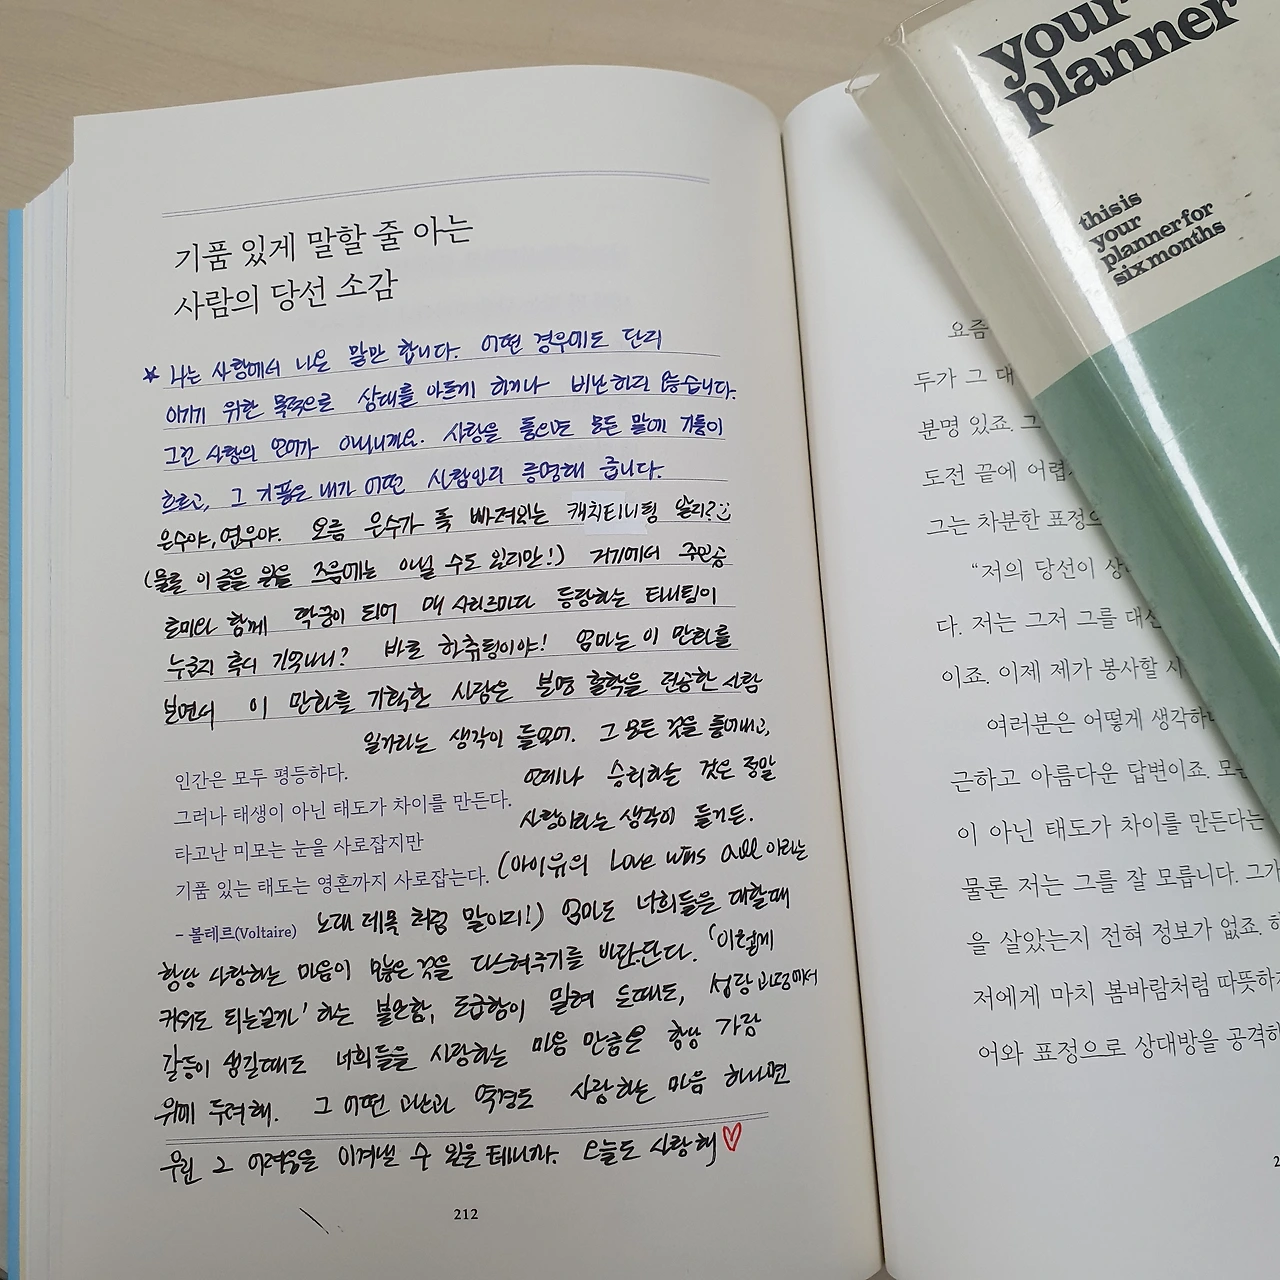 기품 있게 말할 줄 아는
사람의 당선 소감
* 나는 사랑에서 나온 말만 합니다. 어떤 경우에도 단지
이기기 위한 목적으로 상대를 아프게 하거나 비난하지 않습니다.
그건 사랑의 언어가 아니니까요. 사랑을 품으면 모든 말에 기품이
흐르고, 그 기품은 내가 어떤 사람인지 증명해 줍니다.
은수야, 연우야. 요즘 은수가 푹 빠져있는 캐치티니핑 알지?
(물론 이 글을 읽을 즈음에는 아닐 수도 있지만!) 거기에서 주인공
로미와 함께 짝꿍이 되어 매 시리즈마다 등장하는 티니핑이
누군지 혹시 기억나니? 바로 하츄핑이야! 엄마는 이 만화를
보면서 이 만화를 기획한 사람은 분명 철학을 전공한 사람
일거라는 생각이 들었어. 그 모든 것을 품어내고,
언제나 승리하는 것은 정말
사랑이라는 생각이 들거든.
인간은 모두 평등하다.
그러나 태생이 아닌 태도가 차이를 만든다.
타고난 미모는 눈을 사로잡지만
기품 있는 태도는 영혼까지 사로잡는다.
- 볼테르(Voltaire)
(아이유의 Love wins all 이라는
노래 제목 처럼 말이지!) 엄마도 너희들을 대할때
항상 사랑하는 마음이 많은 것을 다스려주기를 바란단다. '이렇게
커워도 되는걸까' 하는 불안함, 조급함이 밀려 든때도, 성장과정에서
갈등이 생길때도 너희들을 사랑하는 마음 만큼은 항상 가장
위에 두려해. 그 어떤 고난과 역경도 사랑하는 마음 하나면
우린 그 어려움을 이겨낼 수 있을 테니까. 오늘도 사랑해
212
your
planner
this is
your
planner for
six months
요즘
두가 그 대
분명 있죠. 그
도전 끝에 어렵
그는 차분한 표정으
"저의 당선이 상
다. 저는 그저 그를 대신
이죠. 이제 제가 봉사할 시
여러분은 어떻게 생각하
근하고 아름다운 답변이죠. 모든
이 아닌 태도가 차이를 만든다는
물론 저는 그를 잘 모릅니다. 그가
을 살았는지 전혀 정보가 없죠. 하
저에게 마치 봄바람처럼 따뜻하
어와 표정으로 상대방을 공격하